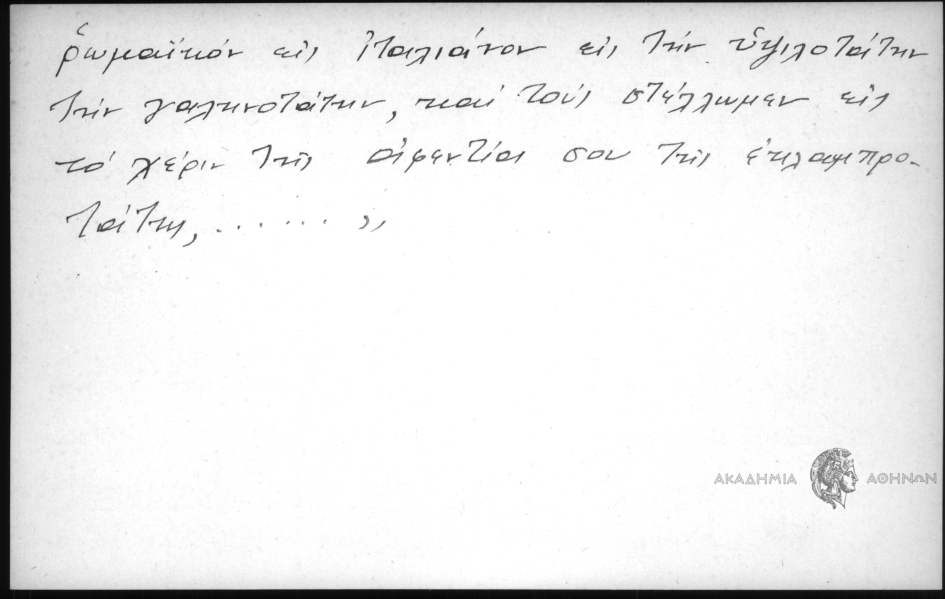 ῥωμαϊκόν εἰς Ἰταλιάνον εἰς τήν ὑψιλοτάτην
τήν γαληνοτάτην, καί τούς στέλλωμεν εἰς
τό χέριν τῆς ἀφεντίας σου τῆς ἐκλαμπρο-
τάτης, ...... ,,
ΑΚΑΔΗΜΙΑ ΑΘΗΝΩΝ